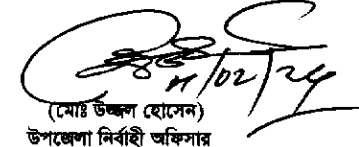 /02/24
(মোঃ উজ্জল হোসেন)
উপজেলা নির্বাহী অফিসার